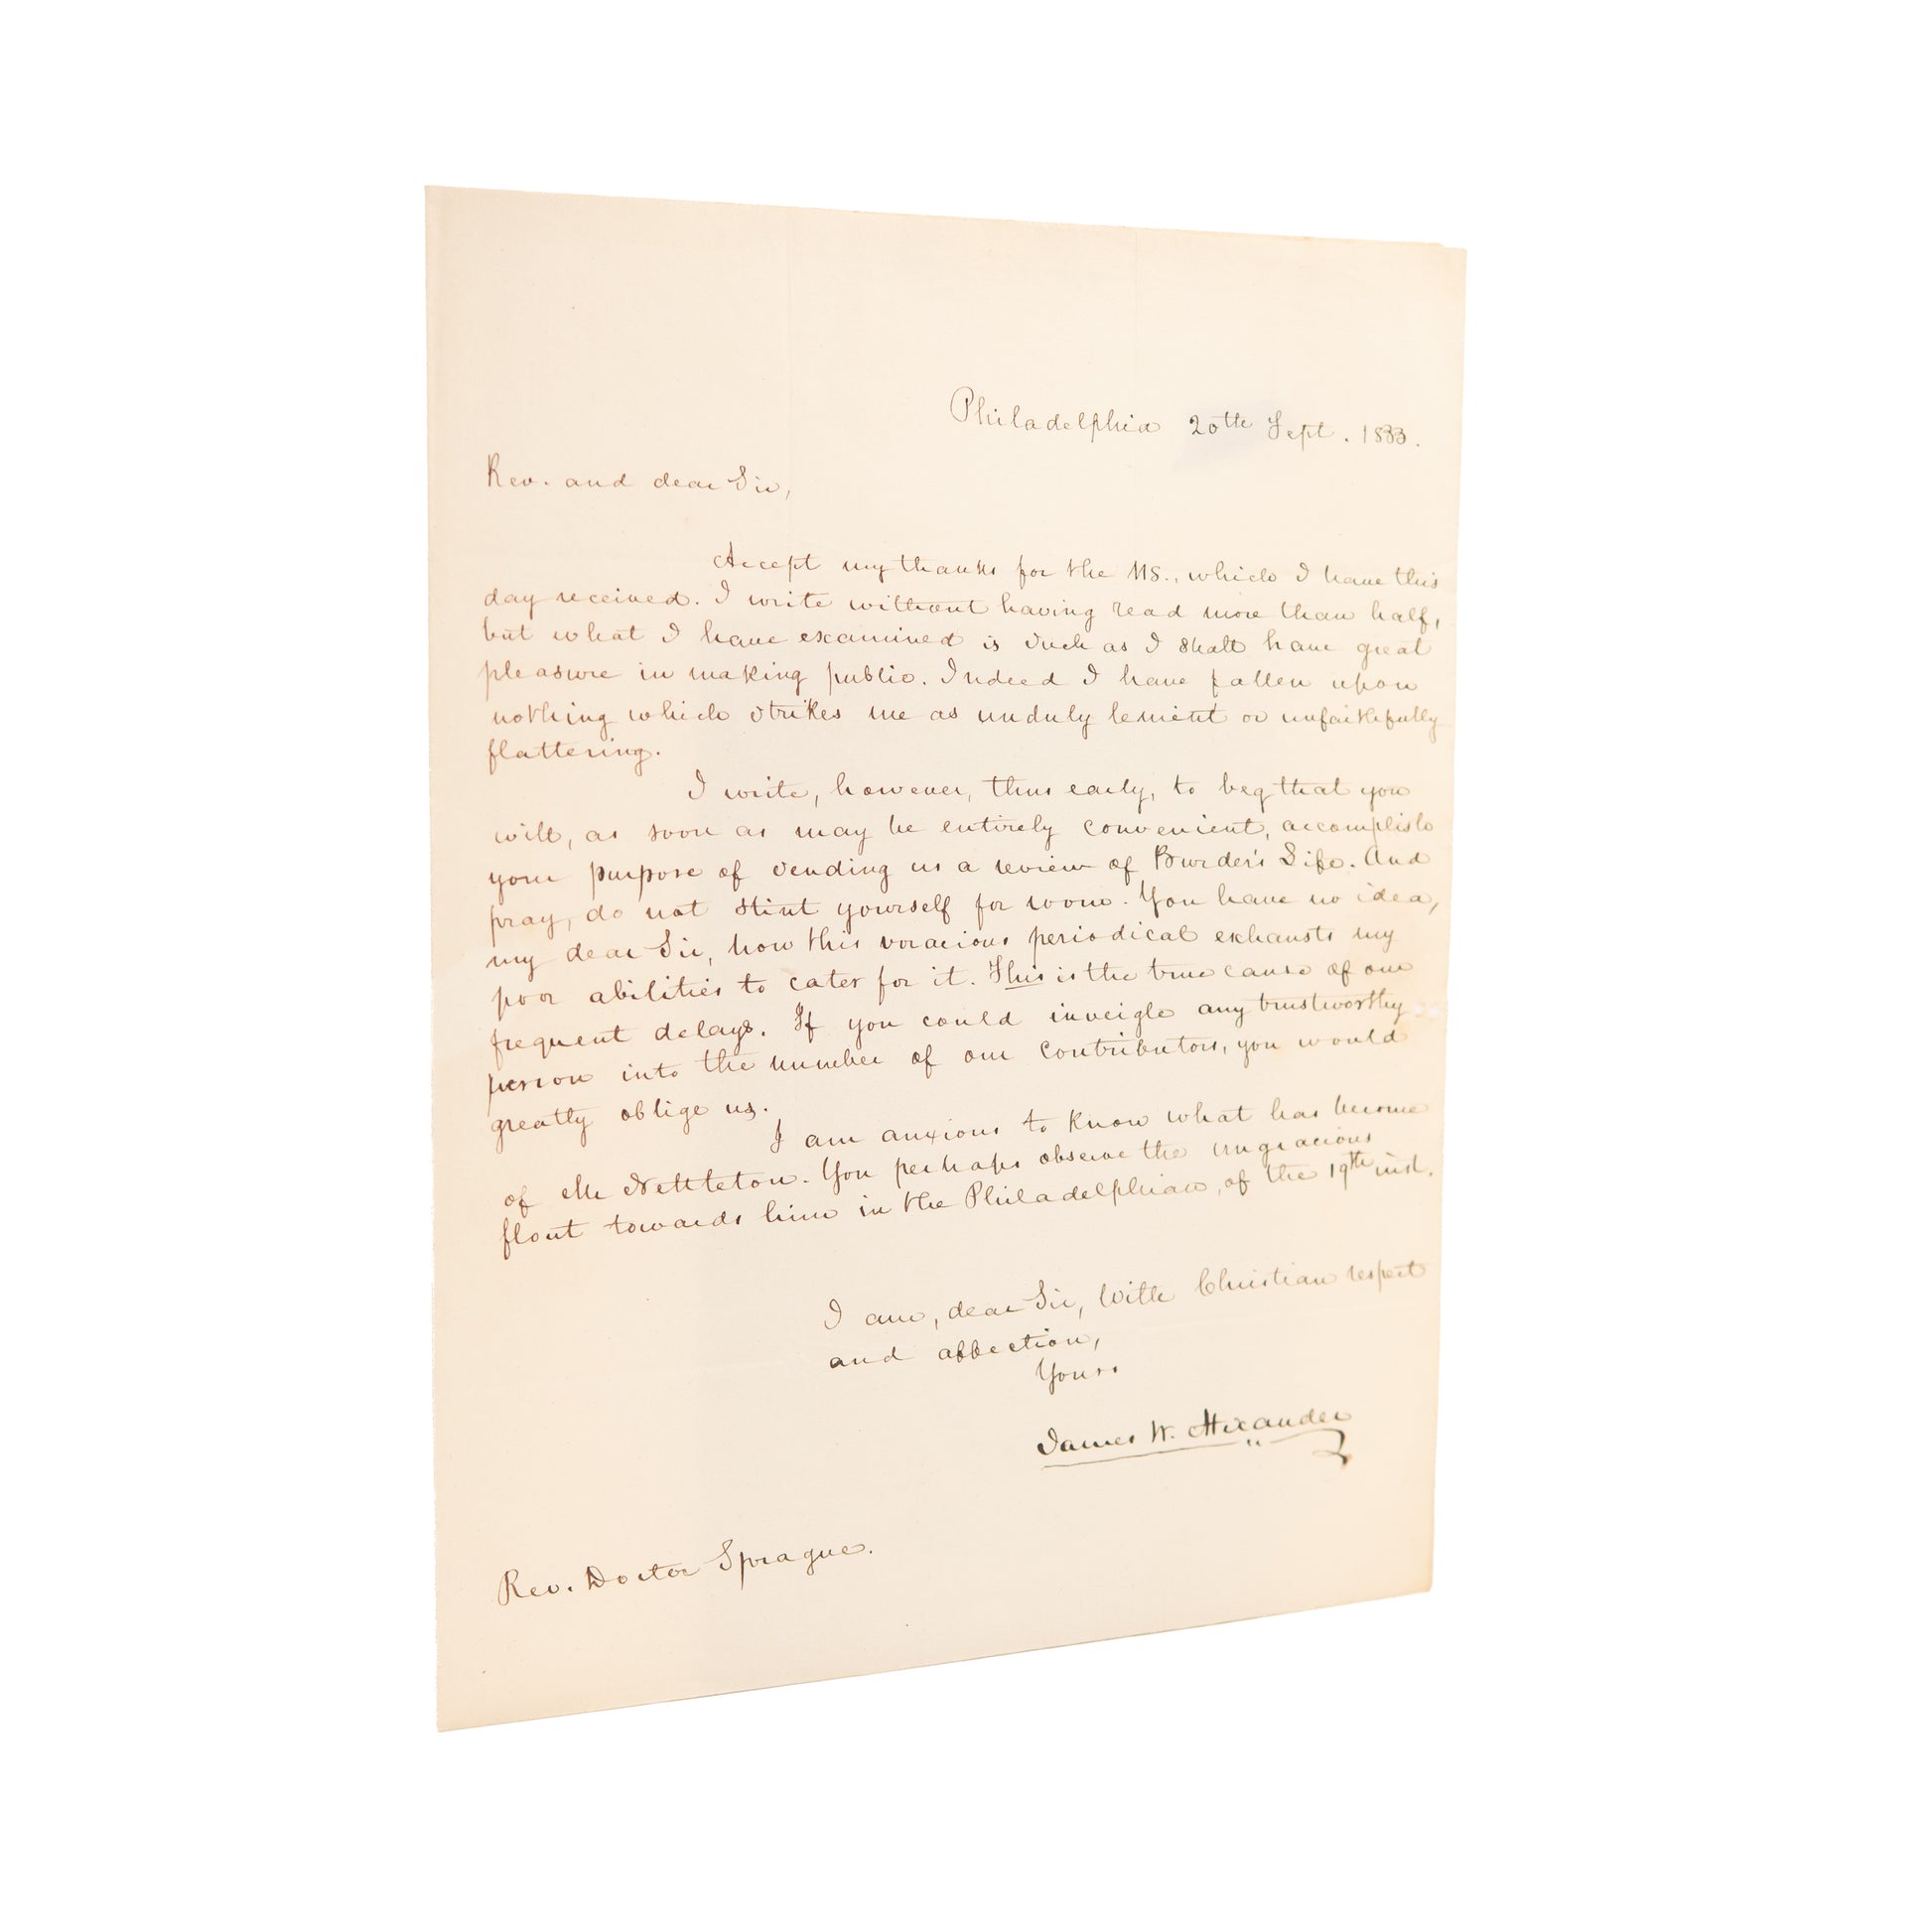 Philadelphia 20th Sept. 1833.
Rev. and dear Sir,
Accept my thanks for the MS., which I have this
day received. I write without having read more than half,
but what I have examined is such as I shall have great
pleasure in making public. Indeed I have fallen upon
nothing which strikes me as unduly lenient or unfaithfully
flattering.
I write, however, thus early, to beg that you
will, as soon as may be entirely convenient, accomplish
your purpose of sending us a review of Burder's Life. And
pray, do not stint yourself for room. You have no idea,
my dear Sir, how this voracious periodical exhausts my
poor abilities to cater for it. This is the true cause of our
frequent delays. If you could inveigle any trustworthy
person into the number of our contributors, you would
greatly oblige us.
I am anxious to know what has become
of Mr Nettleton. You perhaps observe the ungracious
flout towards him in the Philadelphian, of the 19th inst.
I am, dear Sir, With Christian respect
and affection,
Yours
James W. Alexander
Rev. Doctor Sprague.